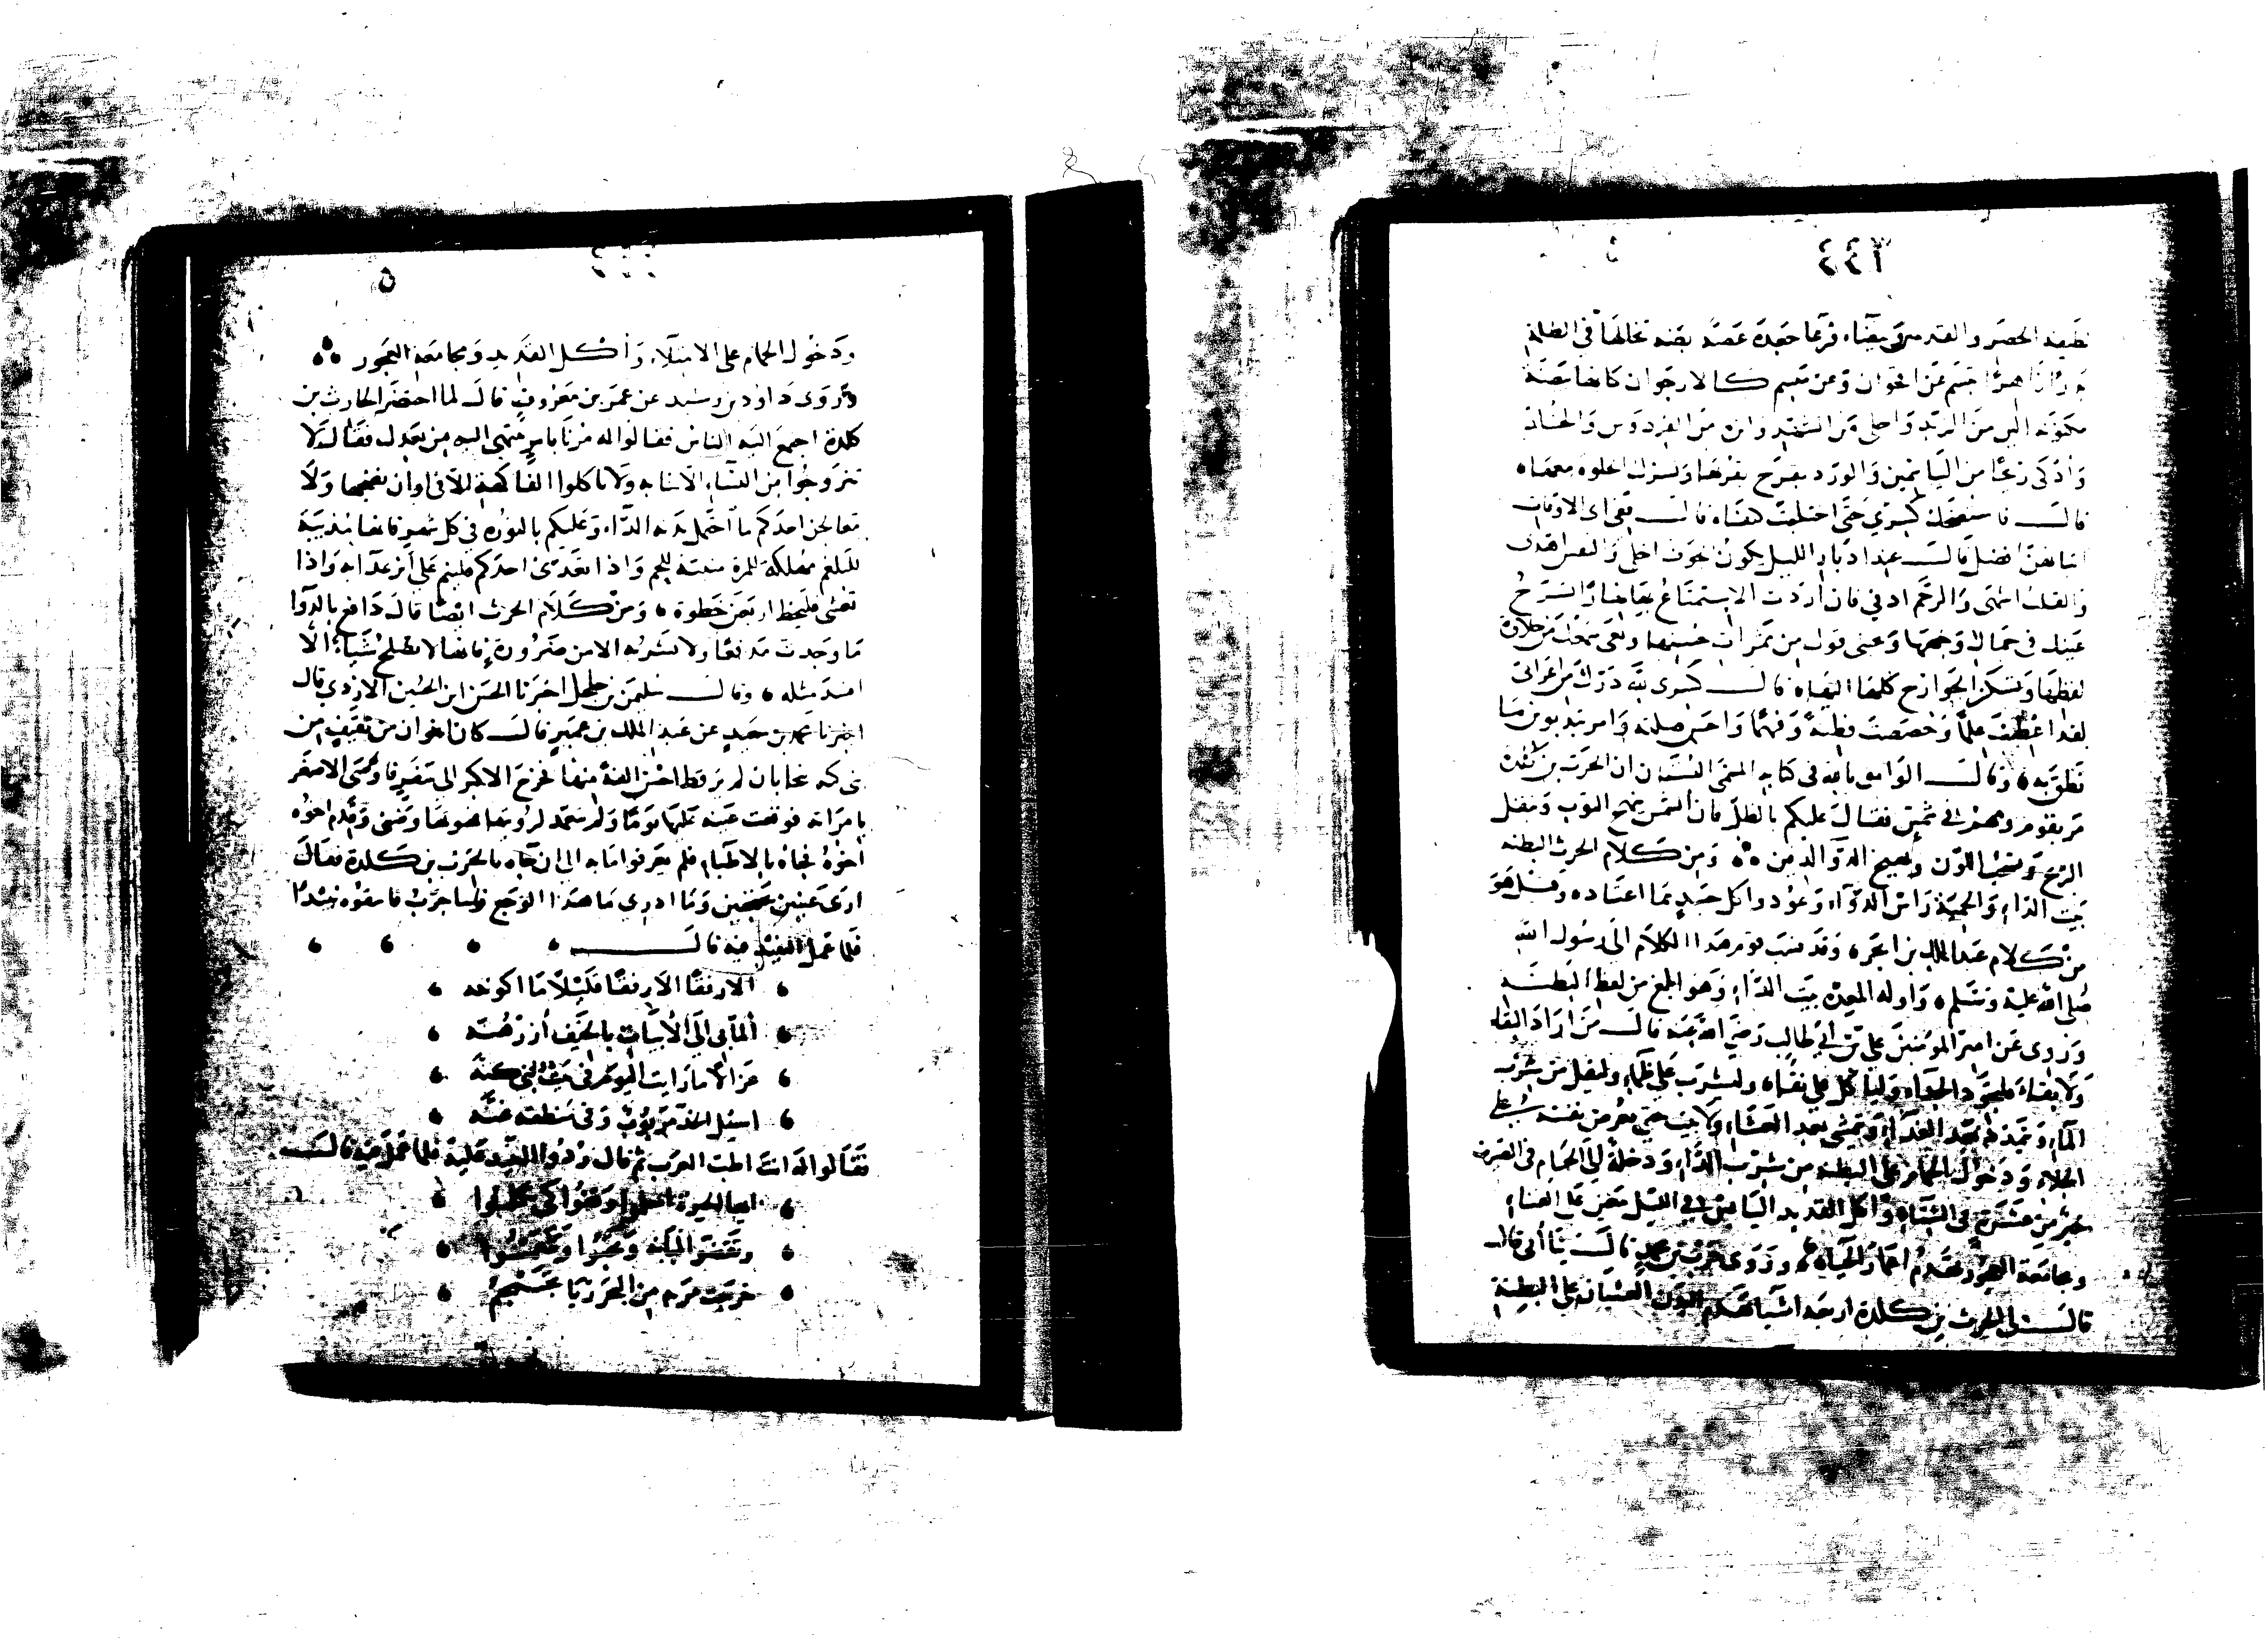 لطيفة الخصر والقدمين بيضاء فرعاء جعدة غضة بضة تخالها في الظلمة
بدرا زاهرا تبسم عن اقحوان وعن مبسم كالارجوان كانها بيضة
مكنونة الين من الزبد واحلى من الشهد وانزه من الفردوس والخلد
وأذكى ريحا من الياسمين والورد تفرح بقربها وتسرك الخلوة معها ه
قال فاستضحك كسرى حتى اختلجت كتفاه قال ففي اى الاوقات
اتيانهن افضل قال عند ادبار الليل يكون الجوف اخلى والنفس اهدى
والقلب اشهى والرحم ادفى فان اردت الاستمتاع بها نهارا تسرح
عينك في جمال وجهها ويجتنى فوك من ثمرات حسنها ويعى سمعك من حلاوة
لفظها وتسكن الجوارح كلها اليها ه قال كسرى لله درك من اعرابى
لقد اعطيت علما وخصصت فطنة وفهما واحسن صلته وامر بتدوين ما
نطق به ه وقال الواثق بالله في كتابه المسمى البستان ان الحرث بن كلدة
مر بقوم وهم في شمس فقال عليكم بالظل فان الشمس تنهج الثوب وتنقل
الريح وتشحب اللون وتهيج الداء الدفين ومن كلام الحرث البطنة
بيت الداء والحمية راس الدواء وعودوا كل جسد ما اعتاده وقيل هو
من كلام عبد الملك بن ابجر ه وقد نسب قوم هذا الكلام الى رسول الله
صلى الله عليه وسلم ه واوله المعدة بيت الداء وهو ابلغ من لفظ البطنة
وروى عن امير المؤمنين علي بن ابي طالب رضي الله عنه قال من اراد البقاء
ولا بقاء فليجود الغداء وليأكل على نقاء ه وليشرب على ظماء وليقل من شرب
الماء ويتمدد بعد الغداء ويتمشى بعد العشاء ولا يبيت حتى يعرض نفسه على
الخلاء ودخول الحمام على البطنة من شر الداء ودخلة الى الحمام في الصيف
خير من عشرة في الشتاء واكل القديد اليابس في الليل معين على الفناء
ومجامعة العجوز تهدم اعمار الاحياء ه وروى حرب بن محمد قال حدثنا أبى قال
قال الحرث بن كلدة اربعة اشياء تهدم البدن الغشيان على البطنة
ودخول الحمام على الامتلاء وأكل القديد ومجامعة العجوز
وروى داود بن رشيد عن عمر بن معروف قال لما احتضر الحارث بن
كلدة اجتمع اليه الناس فقالوا له مرنا بامر ننتهى اليه من بعدك فقال لا
تتزوجوا من النساء الا شابة ولا تاكلوا الفاكهة الا في اوان نضجها ولا
يتعالجن احدكم ما احتمل بدنه الداء وعليكم بالنورة في كل شهر فانها مذيبة
للبلغم مهلكة للمرة منبتة للحم واذا تغدى احدكم فلينم على أثر غدائه واذا
تعشى فليخط اربعين خطوة ه ومن كلام الحرث ايضا قال دافع بالدواء
ما وجدت مدفعا ولا تشربه الا من ضرورة فانه لا يصلح شيأ الا
افسد مثله ه وقال سليمن بن جلجل اخبرنا الحسن ابن الحسين الازدي قال
اخبرنا محمد بن سعيد عن عبد الملك بن عمير قال كان اخوان من ثقيف من
بنى كنه يتحابان لم ير قط احسن الفة منهما فخرج الاكبر الى سفر فاوصى الاصغر
بامراته فوقعت عينه عليها يوما ولم يتعمد لرؤيتها فهويها وضنى وقدم اخوه
أخوه فجاءه بالاطباء فلم يعرفوا ما به الى ان جاءه بالحرث بن كلدة فقال
ارى عينين محتجبتين وما ادرى ما هذا الوجع وساجرب فاسقوه نبيذا
فلما عمل النبيذ فيه قال
الا رفقا الا رفقا قليلا ما اكونه
ألما بي الى الابيات بالخيف أزرهنه
غزالا ما رايت اليوم في دور بنى كنه
اسيل الخد مربوب وفي منطقه غنه
فقالوا له انت اطب العرب ثم قال ردوا النبيذ عليه فلما عمل فيه قال
ايها الجيرة اسلموا وقفوا كى تكلموا
وتقضى لبانة وتحبوا وتنعموا
خرجت مزنة من البحر ريا تحمحم